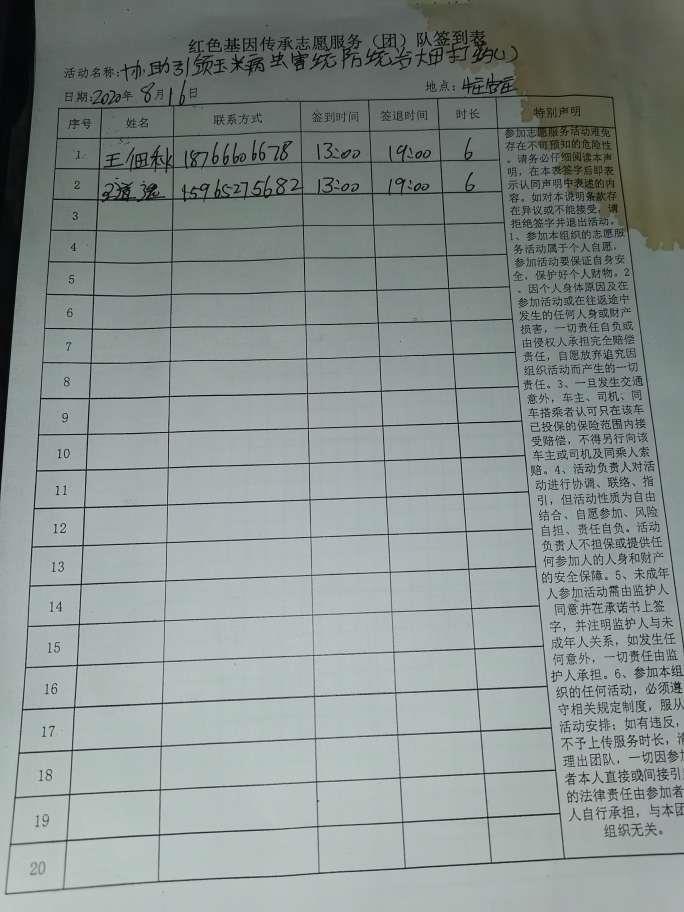 红色基因传承志愿服务(团)队签到表
活动名称:协助引领玉米病虫害统防统治大田打药(1)
日期:2020年8月16日 地点:
序号 姓名 联系方式 签到时间 签退时间 时长 特别声明
1 王佃秋 18766606678 13:00 19:00 6
2 15965275682 13:00 19:00 6
3
4
5
6
7
8
9
10
11
12
13
14
15
16
17
18
19
20
参加志愿服务活动难免
存在不可预知的危险性
。请务必仔细阅读本声
明,在本表签字后即表
示认同声明中表述的内
容。如对本说明条款存
在异议或不能接受,请
拒绝签字并退出活动。
1、参加本组织的志愿服
务活动属于个人自愿,
参加活动要保证自身安
全,保护好个人财物。2
、因个人身体原因及在
参加活动或在往返途中
发生的任何人身或财产
损害,一切责任自负或
由侵权人承担完全赔偿
责任,自愿放弃追究因
组织活动而产生的一切
责任。3、一旦发生交通
意外,车主、司机、同
车搭乘者认可只在该车
已投保的保险范围内接
受赔偿,不得另行向该
车主或司机及同乘人索
赔。4、活动负责人对活
动进行协调、联络、指
引,但活动性质为自由
结合、自愿参加、风险
自担、责任自负。活动
负责人不担保或提供任
何参加人的人身和财产
的安全保障。5、未成年
人参加活动需由监护人
同意并在承诺书上签
字,并注明监护人与未
成年人关系,如发生任
何意外,一切责任由监
护人承担。6、参加本组
织的任何活动,必须遵
守相关规定制度,服从
活动安排;如有违反,
不予上传服务时长,清
理出团队,一切因参加
者本人直接或间接引
的法律责任由参加者
人自行承担,与本团
组织无关。